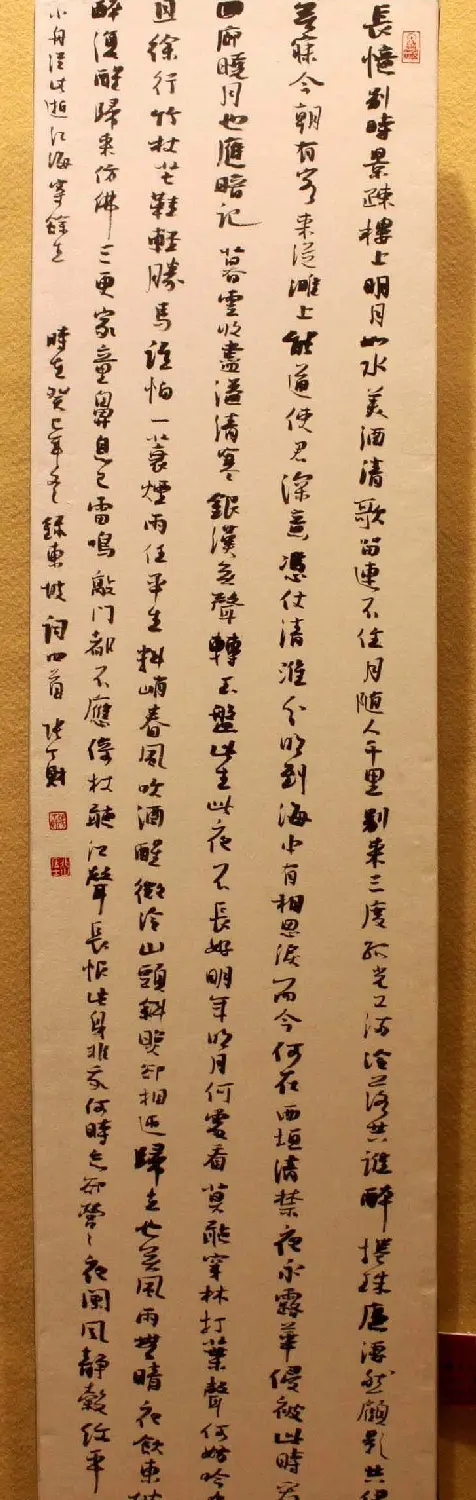 長憶別時景疎樓上明月如水美酒清歌留連不住月隨人千里別來三度孤光又滿冷落共誰醉捲珠廉淒然顧影共伊
無寐今朝有客來從濉上能道使君深意憑仗清淮分明到海中有相思淚而今何在西垣清禁夜永露華侵被此時看
回廊曉月也應暗記 暮雲收盡溢清寒銀漢無聲轉玉盤此生此夜不長好明年明月何處看莫聽穿林打葉聲何妨吟嘯
且徐行竹杖芒鞋輕勝馬誰怕一蓑煙雨任平生料峭春風吹酒醒微冷山頭斜照卻相迎歸去也無風雨無晴夜飲東坡
醉復醒歸來仿佛三更家童鼻息已雷鳴敲門都不應倚杖聽江聲長恨此身非我何時忘卻營々夜闌風靜縠紋平
小舟從此逝江海寄餘生 時在癸巳年冬錄東坡詞四首